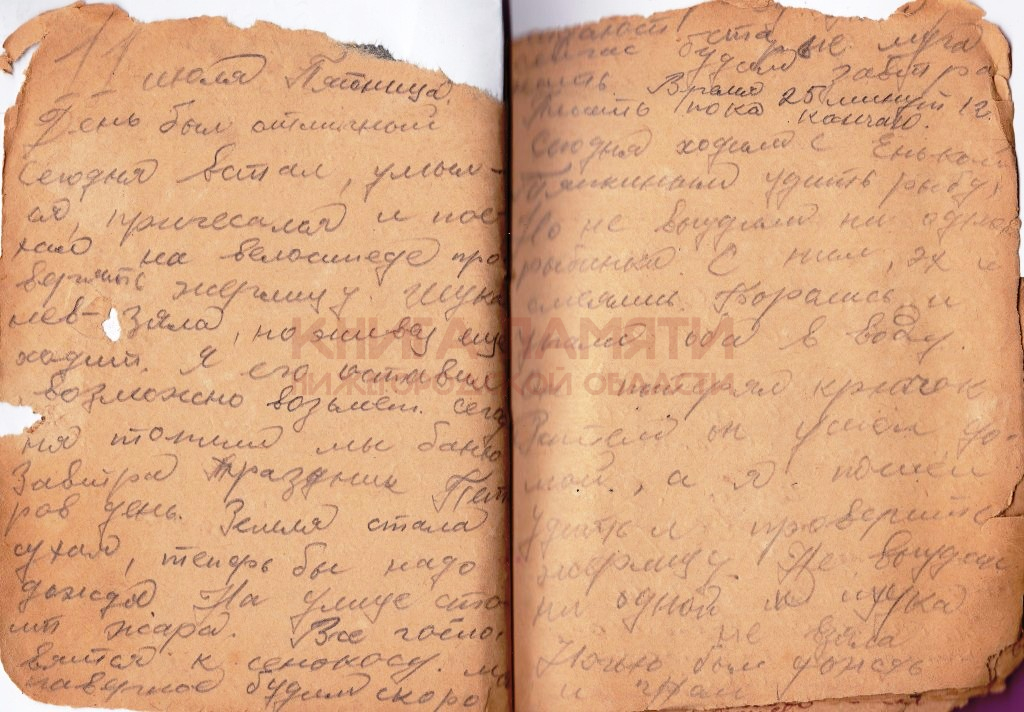 11 июля Пятница.
День был отличный
Сегодня встал, умыл-
ся, причесался и пое-
хал на велосипеде про
верить жерлицу. Щука
не взяла, но живец ещё
ходит. Я его оставил
возможно возьмет. Сего
ня топили мы баню
Завтра праздник Пет
ров день. Земля стала
сухая, теперь бы надо
дождя. На улице сто
ит жара. Все гото
вятся к сенокосу. Мы
наверное будим скоро
будем завтра
Время 25 минут 12
пока кончаю.
Сегодня ходил с Енькой
удить рыбу,
Но не выудили ни одной
рыбинки. С ним, эх и
смеялись. Боролись и
упали оба в воду.
потерял крючок
Потом он ушол до-
мой, а я пошел
удить и проверить
жерлицу. Не выудил
ни одной и щука
не взяла
Ночью был дождь
и гром
КНИГА ПАМЯТИ
НИЖЕГОРОДСКОЙ ОБЛАСТИ